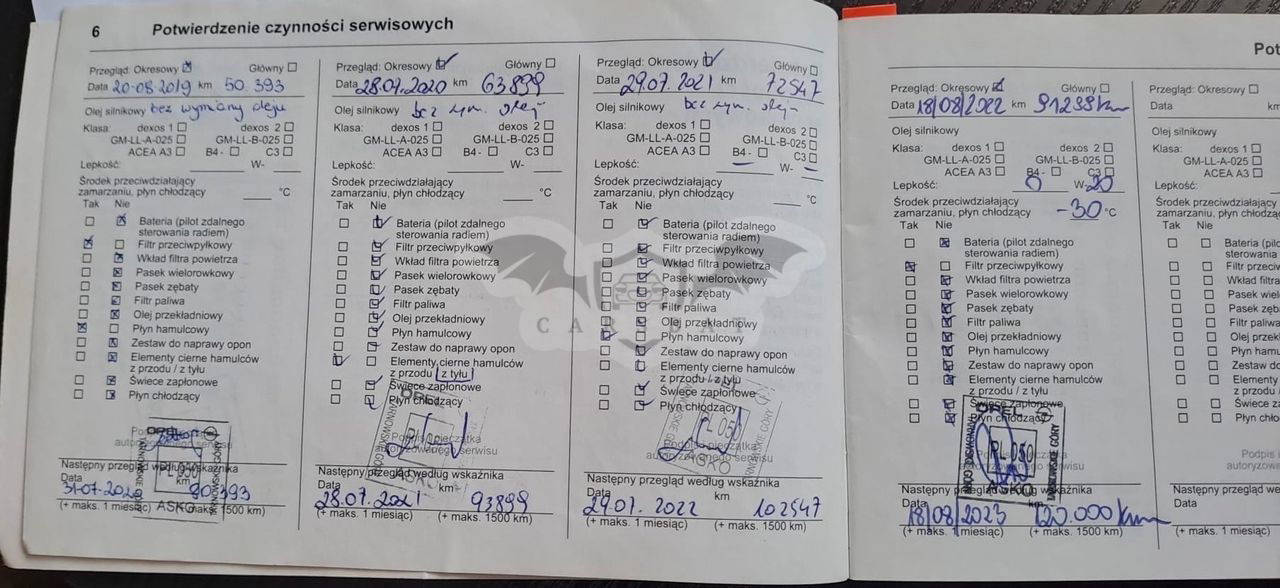 6 Potwierdzenie czynności serwisowych
Przegląd: Okresowy Główny
Data 20-08-2019 km 50.393
Olej silnikowy bez wymiany oleju
Klasa: dexos 1 dexos 2
GM-LL-A-025 GM-LL-B-025
ACEA A3 B4- C3
Lepkość: W-
Środek przeciwdziałający
zamarzaniu, płyn chłodzący °C
Tak Nie
Bateria (pilot zdalnego
sterowania radiem)
Filtr przeciwpyłkowy
Wkład filtra powietrza
Pasek wielorowkowy
Pasek zębaty
Filtr paliwa
Olej przekładniowy
Płyn hamulcowy
Zestaw do naprawy opon
Elementy cierne hamulców
z przodu / z tyłu
Świece zapłonowe
Płyn chłodzący
OPEL
autoryzowanego serwisu
ASKO
Następny przegląd według wskaźnika
Data km
90393
(+ maks. 1 miesiąc) (+ maks. 1500 km)
Przegląd: Okresowy Główny
Data 28.07.2020 km 63899
Olej silnikowy bez wym. oleju
Klasa: dexos 1 dexos 2
GM-LL-A-025 GM-LL-B-025
ACEA A3 B4- C3
Lepkość: W-
Środek przeciwdziałający
zamarzaniu, płyn chłodzący °C
Tak Nie
Bateria (pilot zdalnego
sterowania radiem)
Filtr przeciwpyłkowy
Wkład filtra powietrza
Pasek wielorowkowy
Pasek zębaty
Filtr paliwa
Olej przekładniowy
Płyn hamulcowy
Zestaw do naprawy opon
Elementy cierne hamulców
z przodu / z tyłu
Świece zapłonowe
Płyn chłodzący
OPEL
Podpis i pieczątka
autoryzowanego serwisu
Następny przegląd według wskaźnika
Data km
28.07.2021 93899
(+ maks. 1 miesiąc) (+ maks. 1500 km)
Przegląd: Okresowy Główny
Data 29.07.2021 km 72547
Olej silnikowy bez wym. oleju
Klasa: dexos 1 dexos 2
GM-LL-A-025 GM-LL-B-025
ACEA A3 B4- C3
Lepkość: – W- –
Środek przeciwdziałający
zamarzaniu, płyn chłodzący °C
Tak Nie
Bateria (pilot zdalnego
sterowania radiem)
Filtr przeciwpyłkowy
Wkład filtra powietrza
Pasek wielorowkowy
Pasek zębaty
Filtr paliwa
Olej przekładniowy
Płyn hamulcowy
Zestaw do naprawy opon
Elementy cierne hamulców
z przodu / z tyłu
Świece zapłonowe
Płyn chłodzący
PL 050
Podpis i pieczątka
autoryzowanego serwisu
ASKO
Następny przegląd według wskaźnika
Data km
29.07.2022 102547
(+ maks. 1 miesiąc) (+ maks. 1500 km)
CAR BAT
Przegląd: Okresowy Główny
Data 18/08/2022 km 91238 km
Olej silnikowy
Klasa: dexos 1 dexos 2
GM-LL-A-025 GM-LL-B-025
ACEA A3 B4- C3
Lepkość: 0 W-20
Środek przeciwdziałający
zamarzaniu, płyn chłodzący -30 °C
Tak Nie
Bateria (pilot zdalnego
sterowania radiem)
Filtr przeciwpyłkowy
Wkład filtra powietrza
Pasek wielorowkowy
Pasek zębaty
Filtr paliwa
Olej przekładniowy
Płyn hamulcowy
Zestaw do naprawy opon
Elementy cierne hamulców
z przodu / z tyłu
Świece zapłonowe
Płyn chłodzący
OPEL
PL 050
ASKO
Następny przegląd według wskaźnika
Data km
18/08/2023 120.000 km
(+ maks. 1 miesiąc) (+ maks. 1500 km)
Pot
Przegląd: Okresowy
Data km
Olej silnikowy
Klasa: dexos 1
GM-LL-A-025
ACEA A3
Lepkość:
Środek przeciwdziałający
zamarzaniu, płyn chłodzą
Tak Nie
Bateria (pilo
sterowania
Filtr przeciw
Wkład filtra
Pasek wiel
Pasek zęb
Filtr paliwa
Olej przekł
Płyn hamu
Zestaw do
Elementy
z przodu /
Świece za
Płyn chło
Podpis i
autoryzowan
Następny przegląd we
Data
(+ maks. 1 miesiąc)